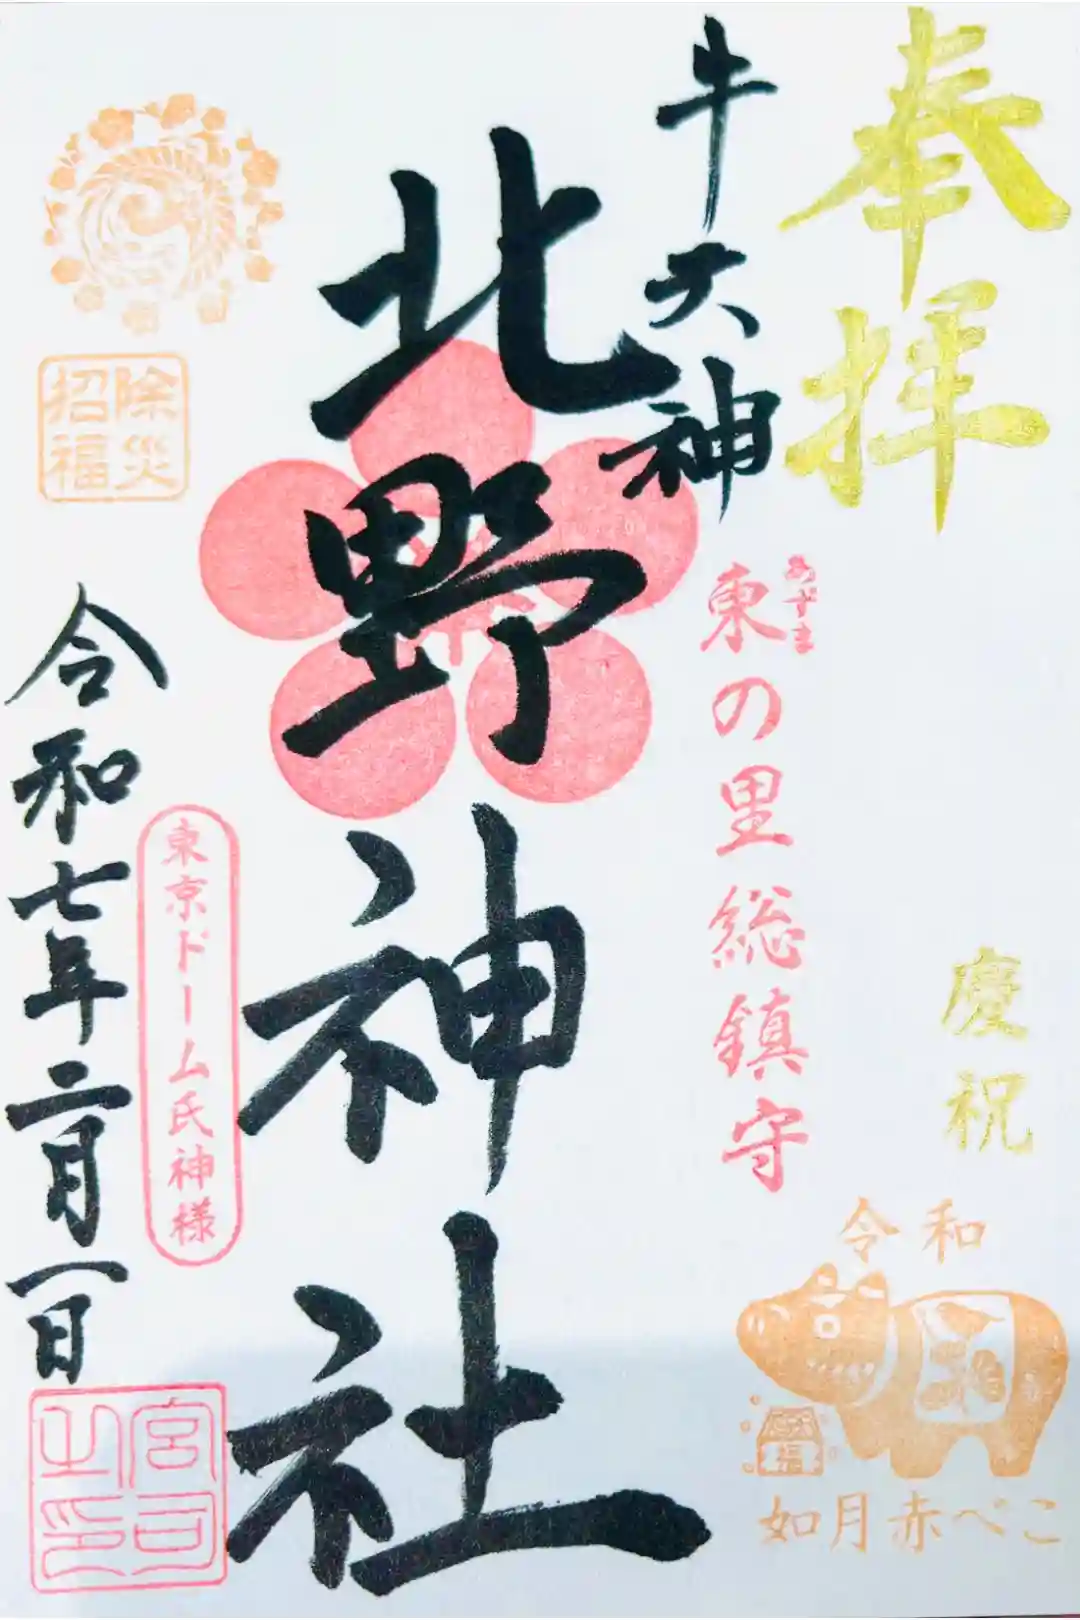 奉拝
慶祝
令和
福
如月赤べこ
牛天神
東の里総鎮守
あずま
北野神社
東京ドーム氏神様
除災
招福
令和七年二月一日
宮司
之印